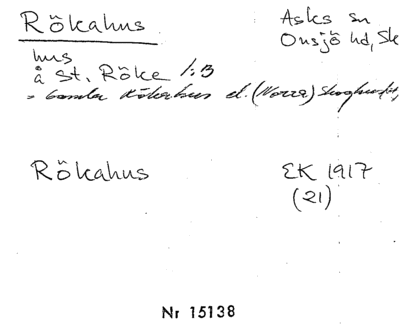 Rökahus
Asks sn
Onsjö hd, Sk
hus
å St. Röke 1:3
= Gamla Rökahus el. (Norra)
Rökahus
EK 1917
(21)
Nr 15138